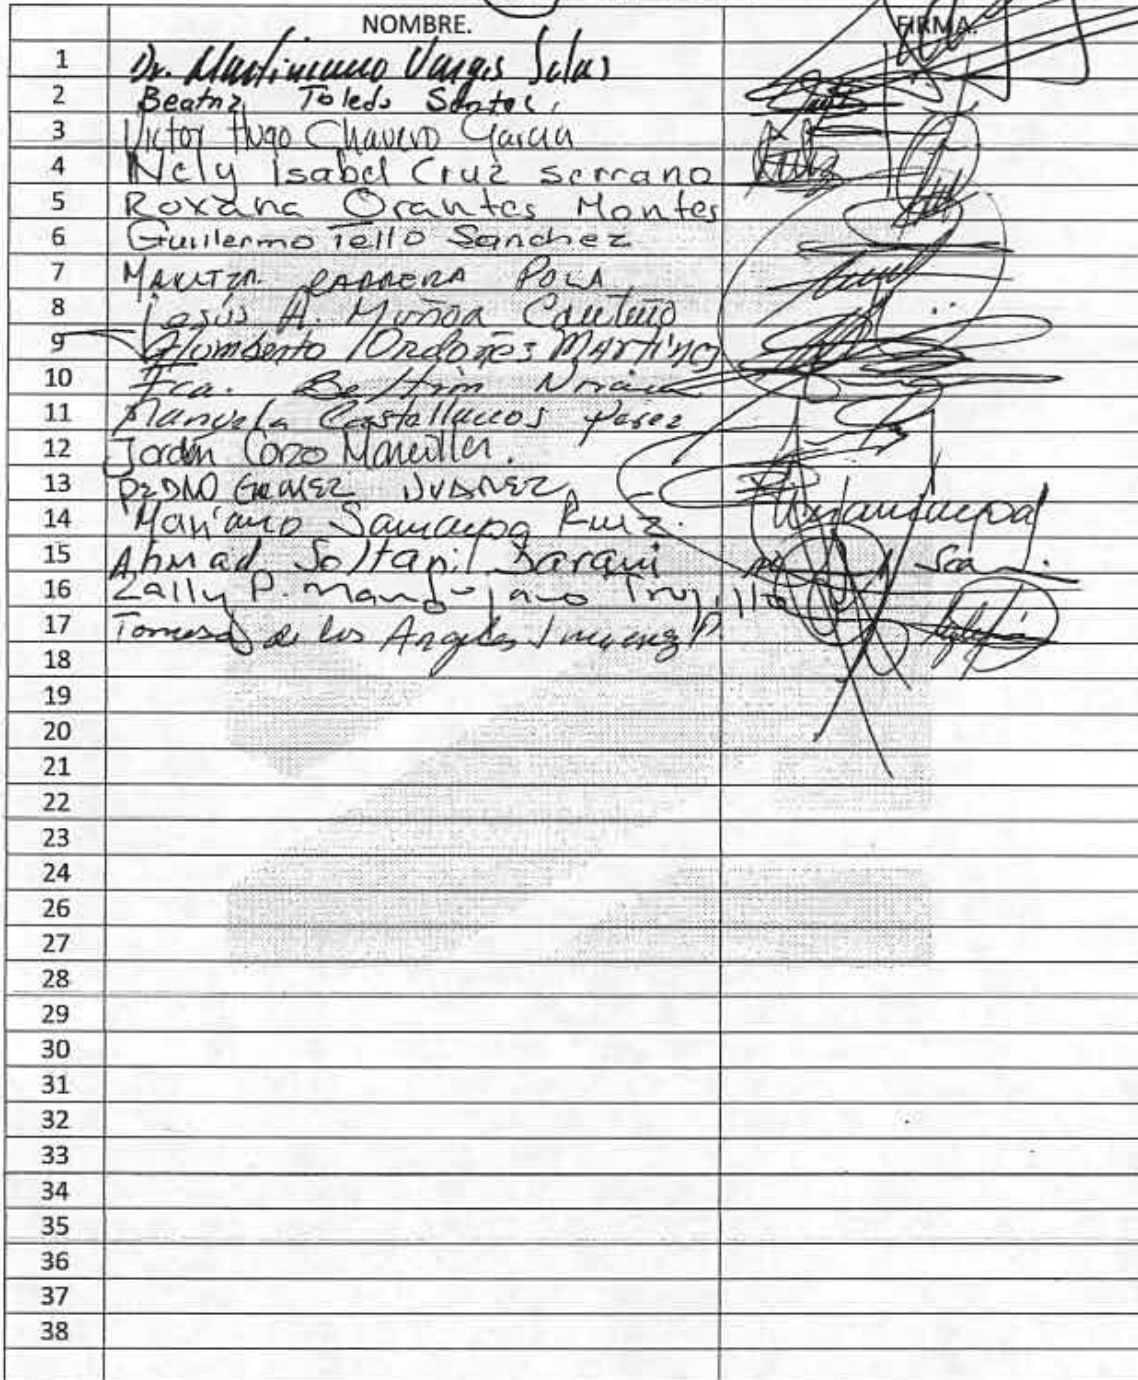 NOMBRE. FIRMA.
1 Dr. Martiniano Vargas Salas
2 Beatriz Toledo Santos.
3 Victor Hugo Chavero Garcia
4 Nely Isabel Cruz Serrano
5 Roxana Orantes Montes
6 Guillermo Tello Sanchez
7 Maritza CABRERA POLA
8 Jesús A. Muñoa
9 Humberto Ordoñes Martinez
10 Fca. Beltrán
11 Manuela Castellanos Perez
12 Jordán Corzo
13 PEDRO GOMEZ JUAREZ
14 Mariano Ruiz.
15 Ahmad Soltani
16 Zally P. Mandujano Trujillo
17 de los Angeles
18
19
20
21
22
23
24
26
27
28
29
30
31
32
33
34
35
36
37
38